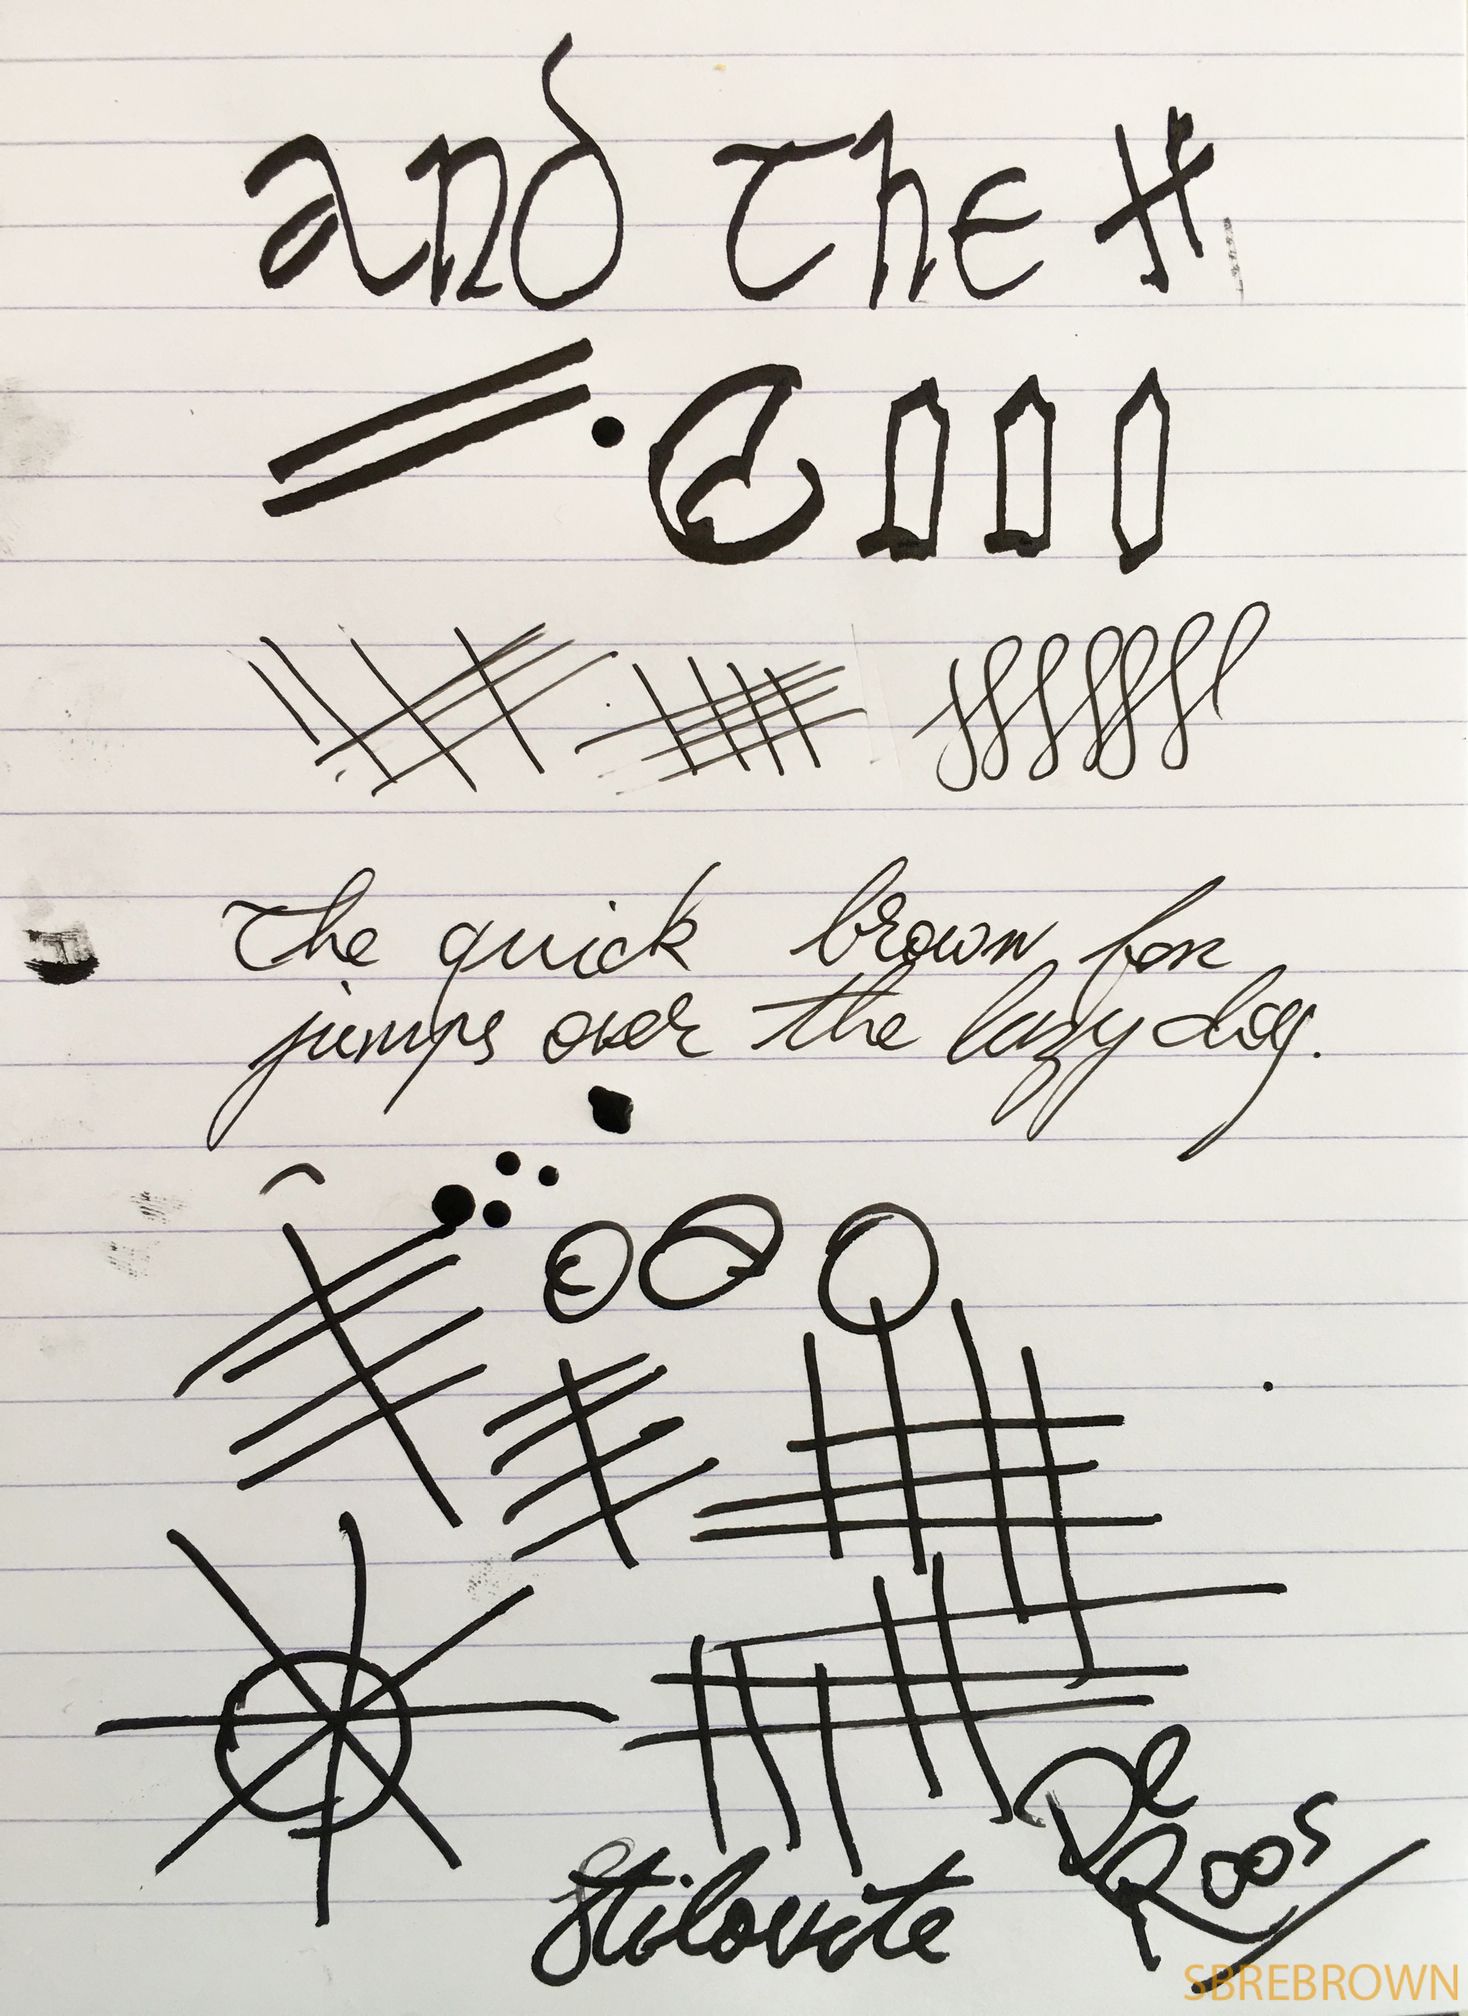 and The #
The quick brown fox
jumps over the lazy dog.
De
Roos
Stilovite
SBREBROWN